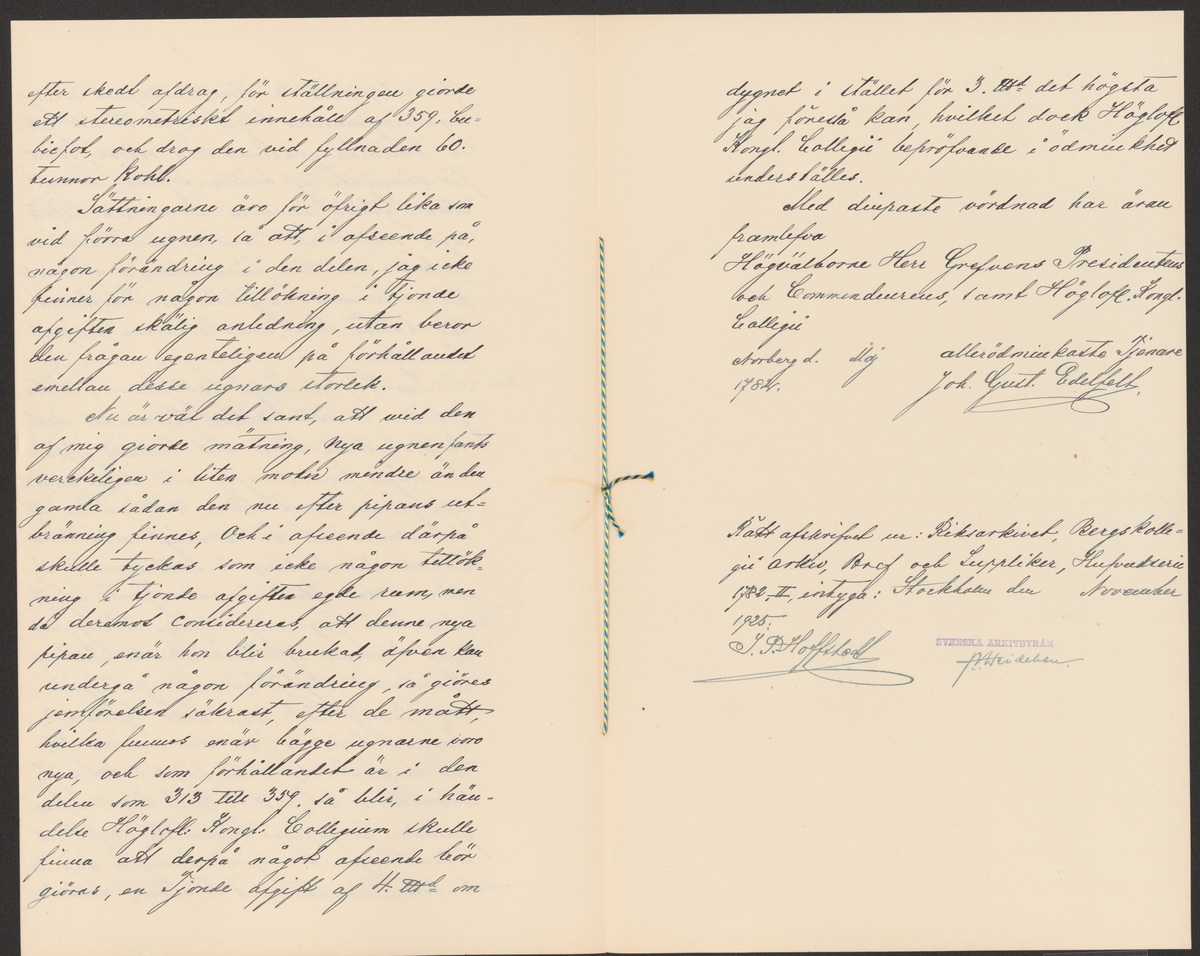 efter skedt afdrag, för ställningen giorde
ett stereometriskt innehåll af 359. cu=
bicfot, och drog den vid fyllnaden 60.
tunnor Kohl.
Sättningarne äro för öfrigt lika som
vid förra ugnen, så att, i afseende på,
någon förändring i den delen, jag icke
finner för någon tillökning i tjonde
afgiften skälig anledning, utan beror
den frågan egenteligen på förhållandet
emellan desse ugnars storlek.
Nu är väl det sant, att wid den
af mig giorde mätning, Nya ugnen fants
verckeligen i liten moton mindre än den
gamla sådan den nu efter pipans ut=
bränning finnes, Och i afseende därpå
skulle tyckas som icke någon tillök=
ning i tjonde afgiften egde rum, men
då deremot Considereras, att denne nya
pipan, enär hon blir brukad, äfven kan
undergå någon förändring, så giöres
jemförelsen säkrast, efter de mått,
hvilka funnos enär bägge ugnarne voro
nya, och som förhållandet är i den
delen som 313 till 359. så blir, i hän-
delse Höglofl: Kongl: Collegium skulle
finna att derpå något afseende bör
giöras, en Tjonde afgift af 4. om
dygnet i stället för 3. det högsta
jag föreslå kan, hvilket dock Höglofl.
Kongl. Collegii bepröfvande i ödmiukhet
underställes.
Med diupaste vördnad har äran
framlefva
Högvälborne Herr Grefvens Presidentens
och Commendeurens, samt Höglofl. Kongl.
Collegii
Norberg d. Maj allerödmiukaste Tjenare
1782. Joh. Gust. Edelfelt.
Rätt afskrifvet ur: Riksarkivet, Bergskolle=
gii arkiv, Bref och Suppliker, Hufvudserie
1782, II, intyga: Stockholm den November
1925.
SVENSKA ARKIVBYRÅN